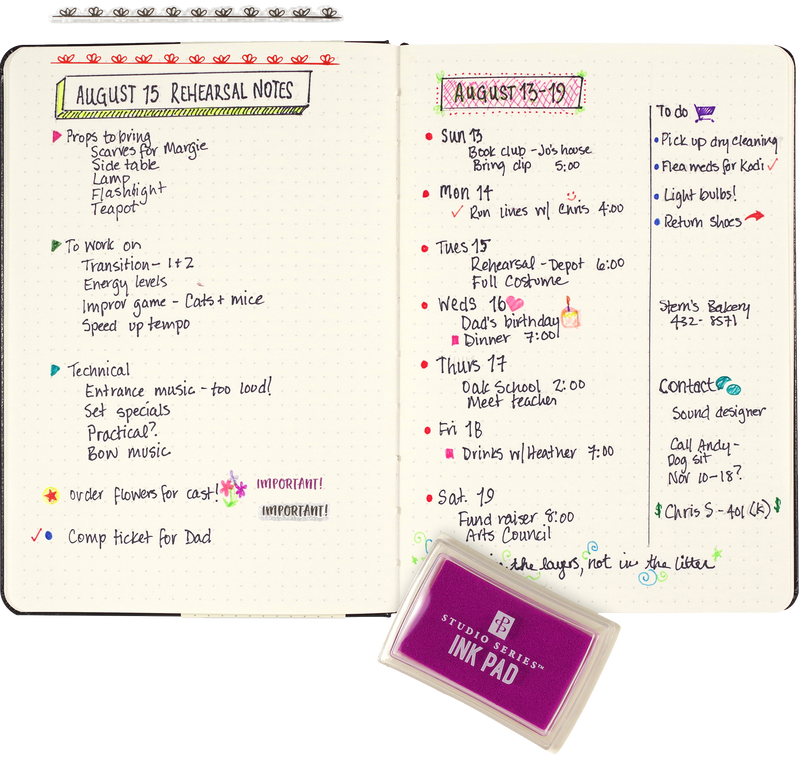 AUGUST 15 REHEARSAL NOTES
Props to bring
Scarves for Margie
Side table
Lamp
Flashlight
Teapot
To work on
Transition - 1+2
Energy levels
Improv game - Cats + mice
Speed up tempo
Technical
Entrance music - too loud!
Set specials
Practical?
Bow music
order flowers for cast!
IMPORTANT!
IMPORTANT!
Comp ticket for Dad
AUGUST 13-19
Sun 13
Book club - Jo's house
Bring dip 5:00
Mon 14
Run lines w/ Chris 4:00
Tues 15
Rehearsal - Depot 6:00
Full Costume
Weds 16
Dad's birthday
Dinner 7:00
Thurs 17
Oak School 2:00
Meet teacher
Fri 18
Drinks w/ Heather 7:00
Sat. 19
Fund raiser 8:00
Arts Council
To do
Pick up dry cleaning
Flea meds for Kodi
Light bulbs!
Return Shoes
Stern's Bakery
432-8571
Contact
Sound designer
Call Andy-
Dog sit
Nov 10-18?
$ Chris S - 401(K) $
the layers, not in the litter
STUDIO SERIES™
INK PAD